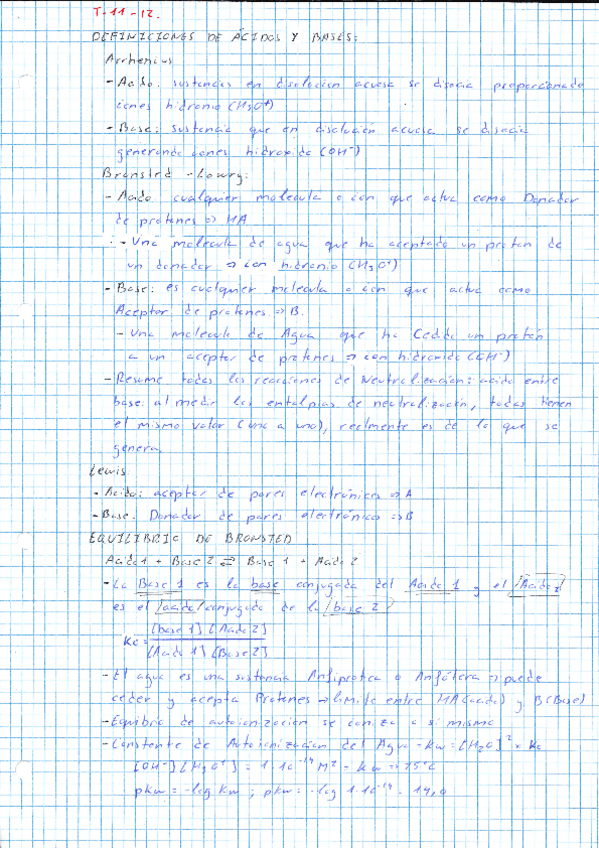 T-11-12.
DEFINICIONES DE ÁCIDOS Y BASES:
Arrhenius
- Acido: sustancias en disolucion acuosa se disocia proporcionado
iones hidronio (H3O+)
- Base: sustancia que en disolución acuosa se disocia
generando iones hidroxido (OH-)
Bronsted - Lowry:
- Acido cualquier molecula o ion que actua como Donador
de protones => HA
- Una molecula de agua que ha aceptado un proton de
un donador => ion hidronio (H3O+)
- Base: es cualquier molecula o ion que actua como
Aceptor de protones => B.
- Una molecula de Agua que ha Cedido un protón
a un aceptor de protones => ion hidroxido (OH-)
- Resume todas las reacciones de Neutralización: acido entre
base: al medir las entalpias de neutralización, todas tienen
el mismo valor (uno a uno), realmente es de lo que se
genera.
Lewis
- Acido: aceptor de pares electrónicos => A
- Base: Donador de pares electrónico => B
EQUILIBRIO DE BRONSTED
Acido 1 + Base 2 ⇄ Base 1 + Acido 2
- La Base 1 es la base conjugada del Acido 1 y el Acido 2
es el acido conjugado de la base 2
Kc = [base 1] [Acido 2] / [Acido 1] [Base 2]
- El agua es una sustancia Anfiprotica o Anfótera => puede
ceder y acepta Protones => limite entre HA (acido) y B (Base)
- Equibrio de autoionizacion se ioniza a si mismo
- Constante de Autoionización del Agua - Kw = [H2O]² * Kc
[OH-] [H3O+] = 1.10-14 M² - Kw => 25°C
pKw = -log Kw ; pKw = -log 1.10-14 = 14,0